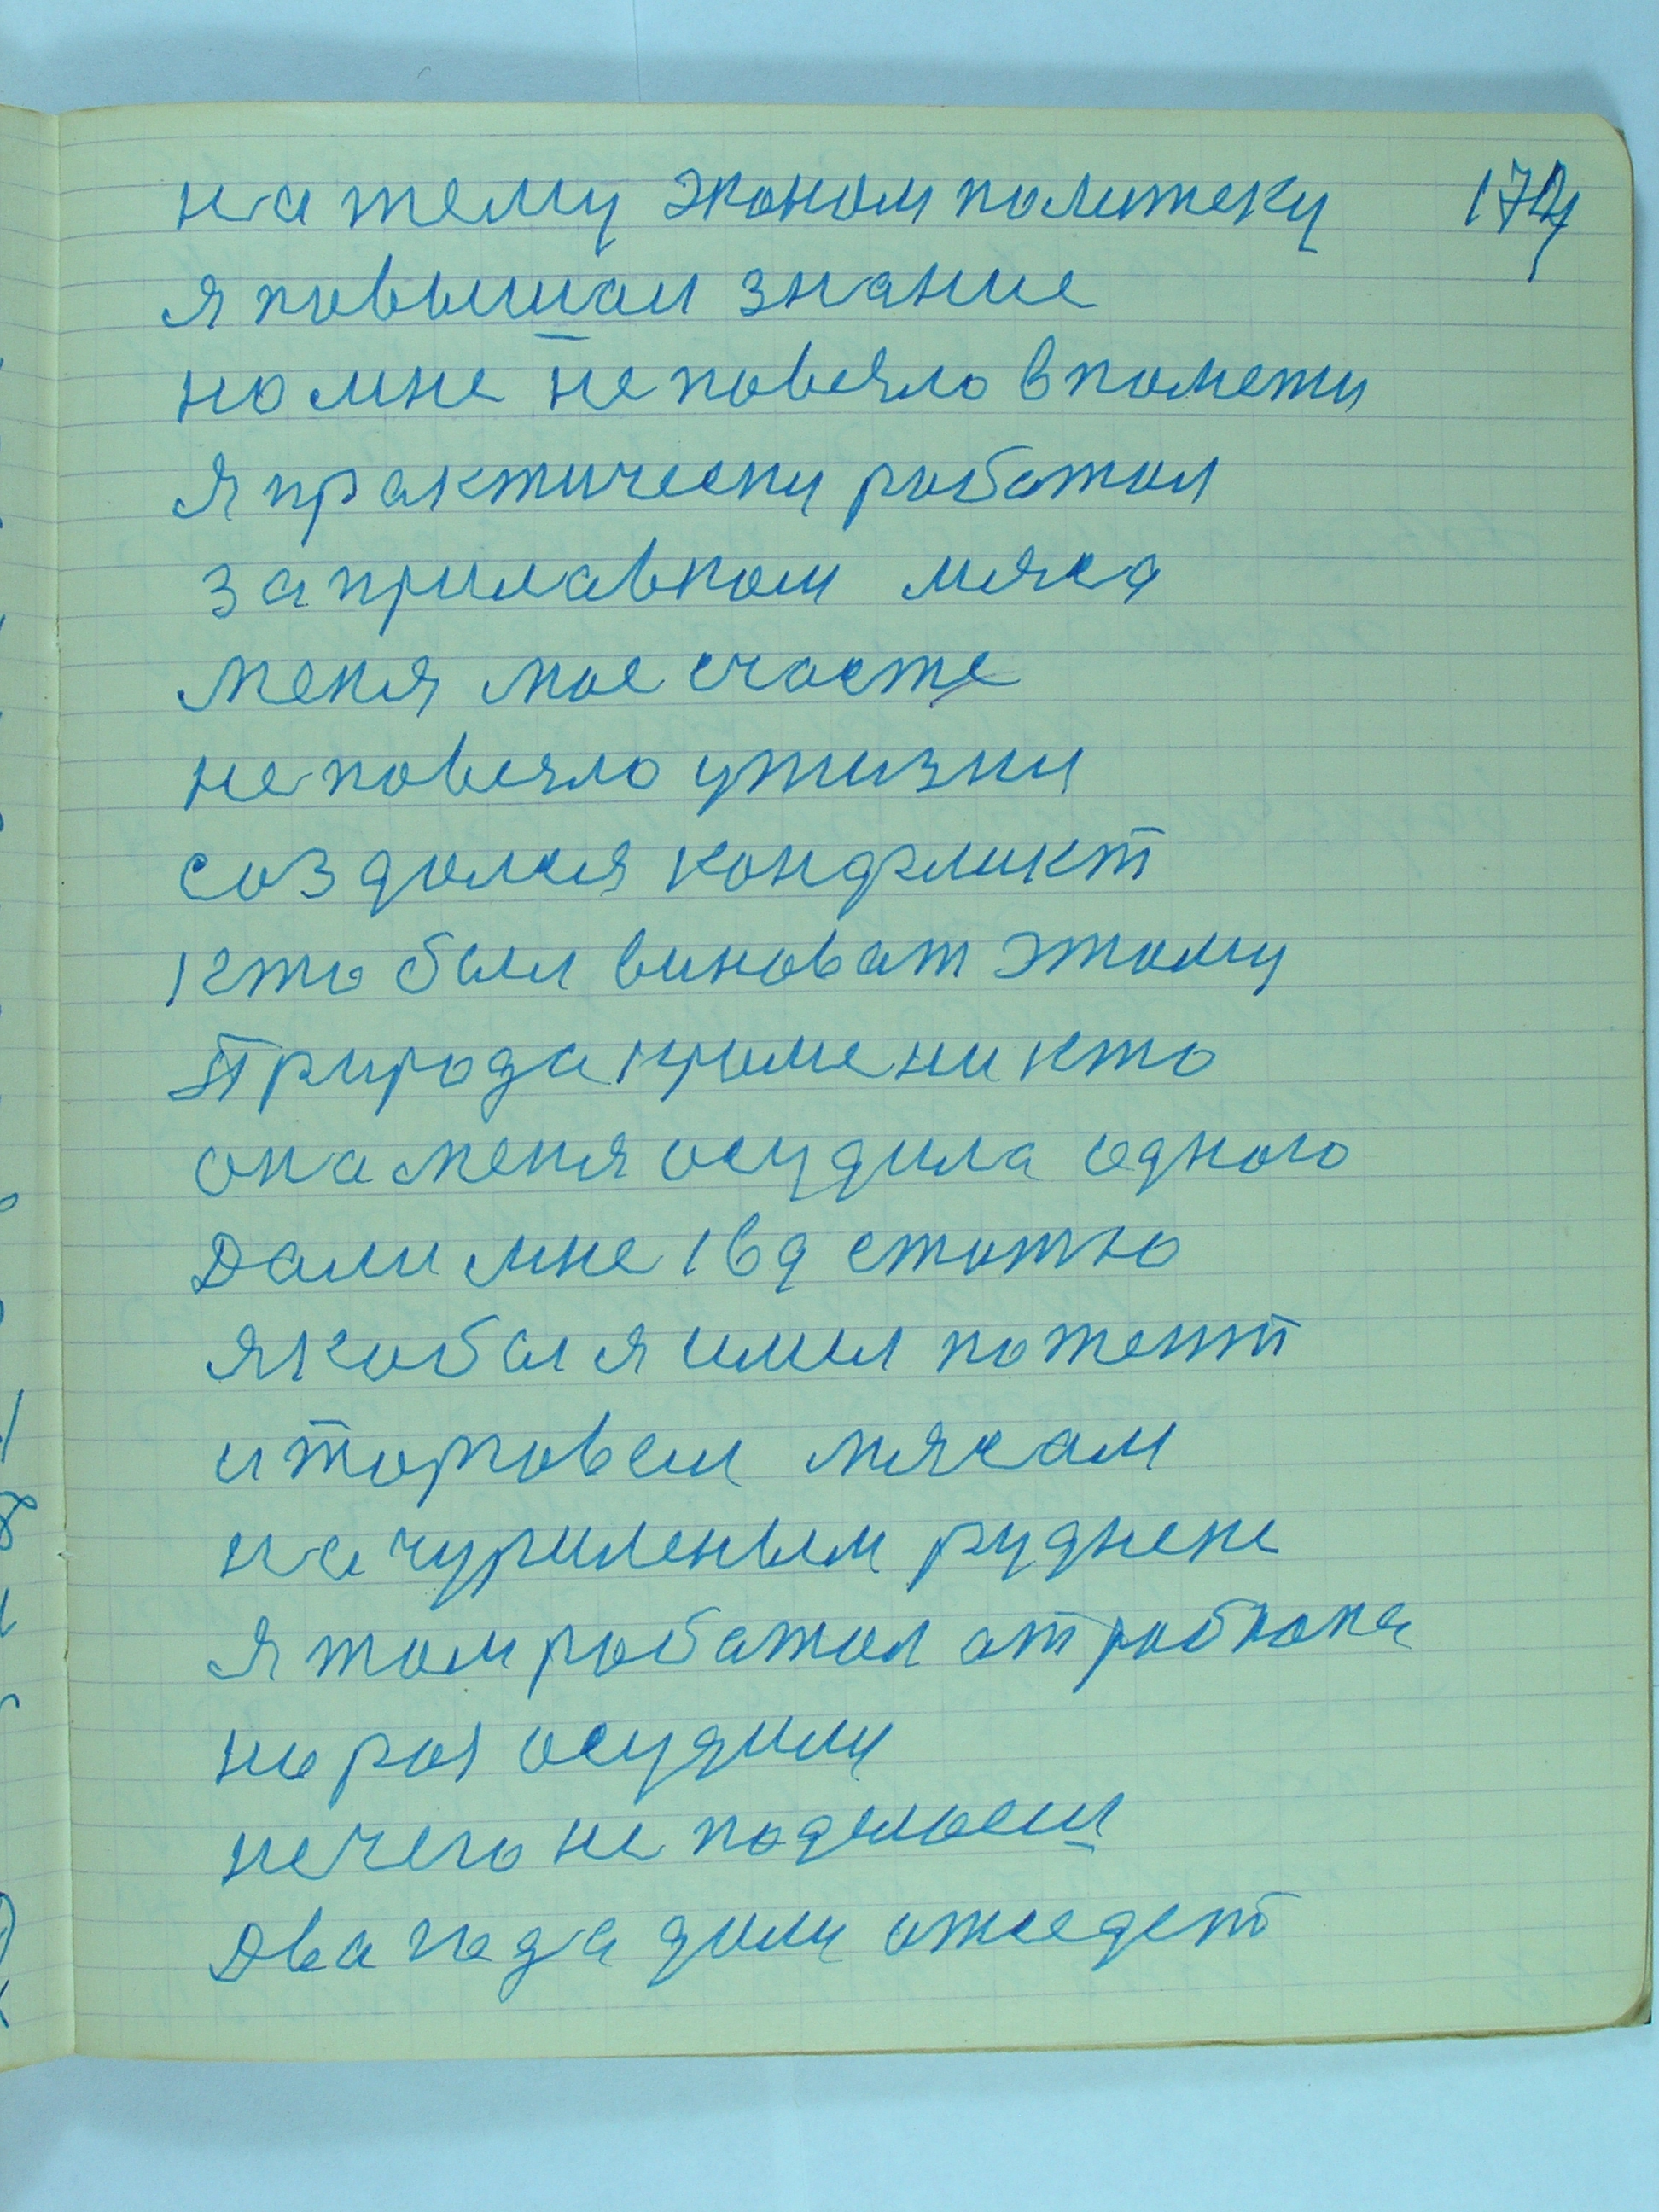 на тему эконом политеку
я повышал знание
но мне не повезло в пометы
я практически работал
за прилавком мяса
меня мое счасте
не повезло у жизни
создался конфликт
кто был виноват этому
Природа кроме никто
она меня осудила одного
Дали мне 169 статю
якобы я имел патент
и торговал мясам
на чурилиным руднеке
я там работал от рабкопа
но раз осудили
нечего не поделаеш
Два года дали отседет